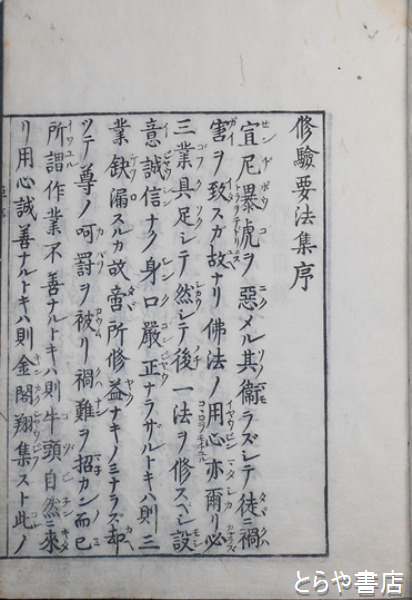 修驗要法集序
宣尼暴虎ヲ惡メル其衞ラズシテ徒ニ禍
害ヲ致スガ故ナリ佛法ノ用心亦爾リ必
三業具足シテ然シテ後一法ヲ修スベシ設
意誠信ナク身口嚴正ナラザルトキハ則三
業缺漏スルカ故啻所修益ナキノミナラズ却
ツテ尊ノ呵罰ヲ被リ禍難ヲ招カン而已
所謂作業不善ナルトキハ則牛頭自然ニ來
リ用心誠善ナルトキハ則金閣翔集スト此ノ
とらや書店